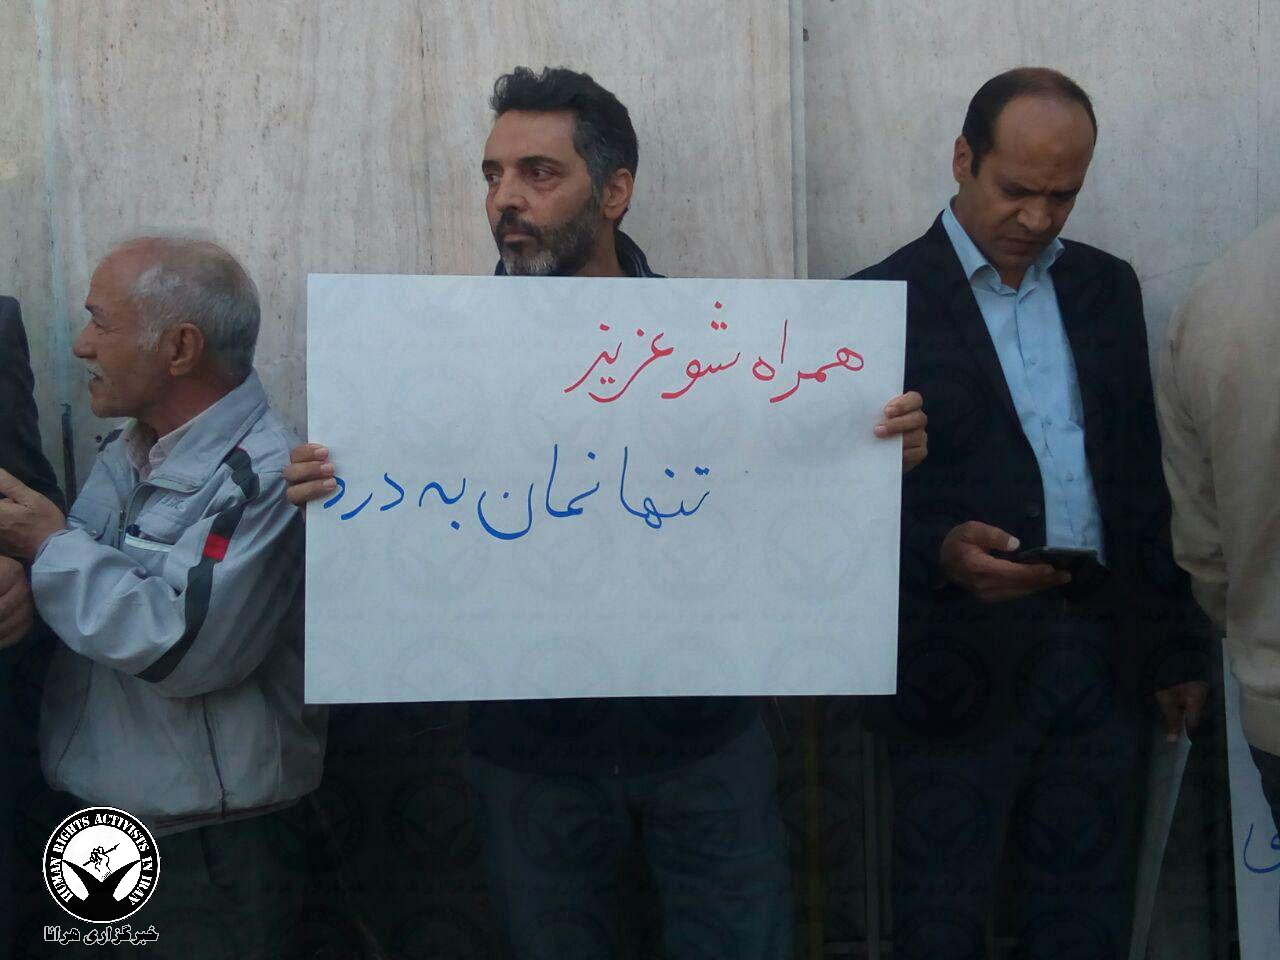 همراه شو عزیز
تنها نمان به درد
HUMAN RIGHTS ACTIVISTS IN IRAN
خبرگزاری هرانا